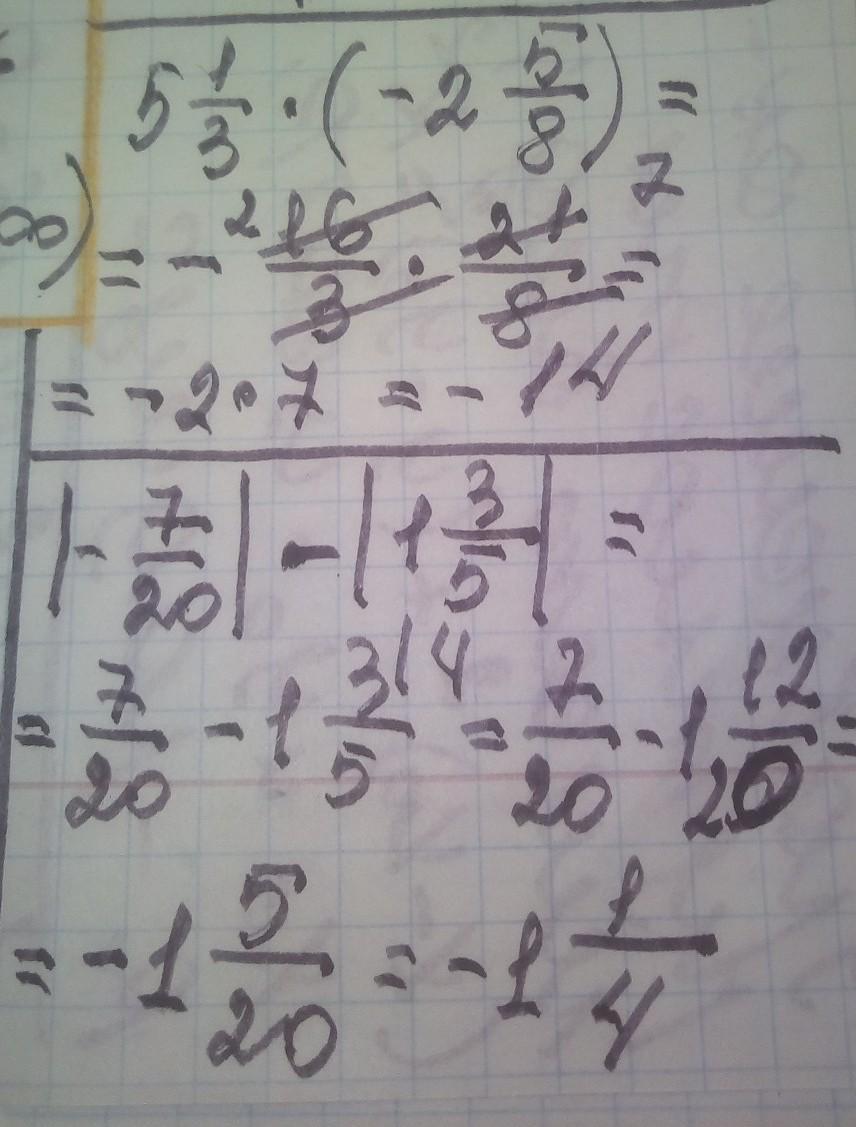 ∞)
5 1/3 · (- 2 5/8) =
= - ² 16/3 · 21/8 ⁷ =
= - 2 · 7 = - 14
|- 7/20| - |1 3/5| =
= 7/20 - 1 3/5 |4 = 7/20 - 1 12/20 =
= - 1 5/20 = - 1 1/4